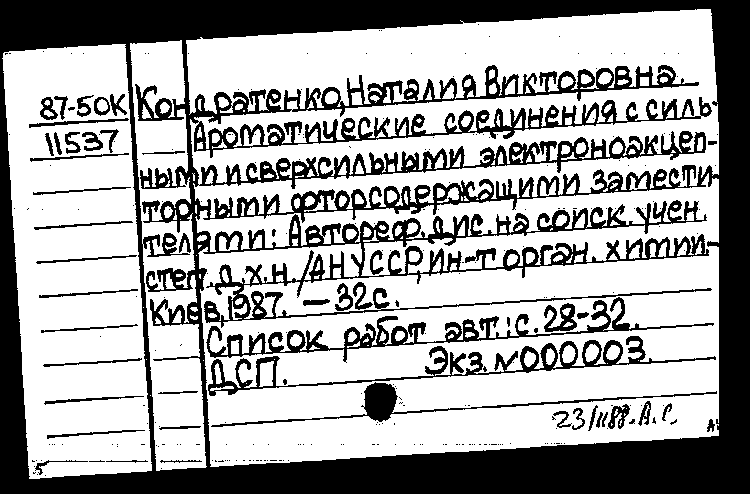 87-50К Кондратенко, Наталия Викторовна.
11537 Ароматические соединения с силь-
ными и сверхсильными электроноакцеп-
торными фторсодержащими замести-
телями: Автореф. дис. на соиск. учен.
степ. д.х.н. /АН УССР, Ин-т орган. химии.-
Киев, 1987. - 32с.
Список работ авт.: с. 28-32.
ДСП. Экз. №000003.